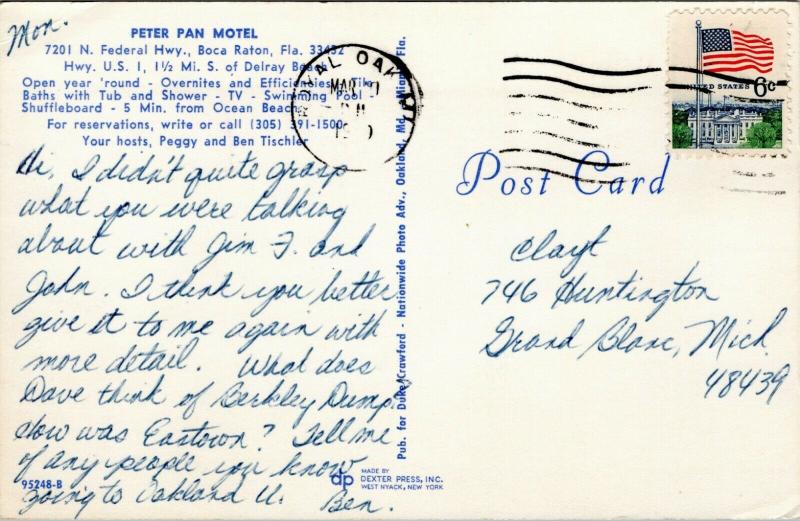 Mon.
PETER PAN MOTEL
7201 N. Federal Hwy., Boca Raton, Fla. 33432
Hwy. U.S. 1, 1½ Mi. S. of Delray Beach
Open year 'round - Overnites and Efficiencies - Tile
Baths with Tub and Shower - TV - Swimming Pool
Shuffleboard - 5 Min. from Ocean Beach
For reservations, write or call (305) 391-1500
Your hosts, Peggy and Ben Tischler
Hi, I didn't quite grasp
what you were talking
about with Jim F. and
John. I think you better
give it to me again with
more detail. What does
Dave think of Berkley Dump?
How was Eastown? Tell me
of any people you know
going to Oakland U. Ben.
95248-B
Pub. for Duke Crawford - Nationwide Photo Adv., Oakland, Md. Fla.
dp
MADE BY
DEXTER PRESS, INC.
WEST NYACK, NEW YORK
ROYAL OAK
MAR
PM
UNITED STATES 6c
Post Card
Clayt
746 Huntington
Grand Blanc, Mich.
48439